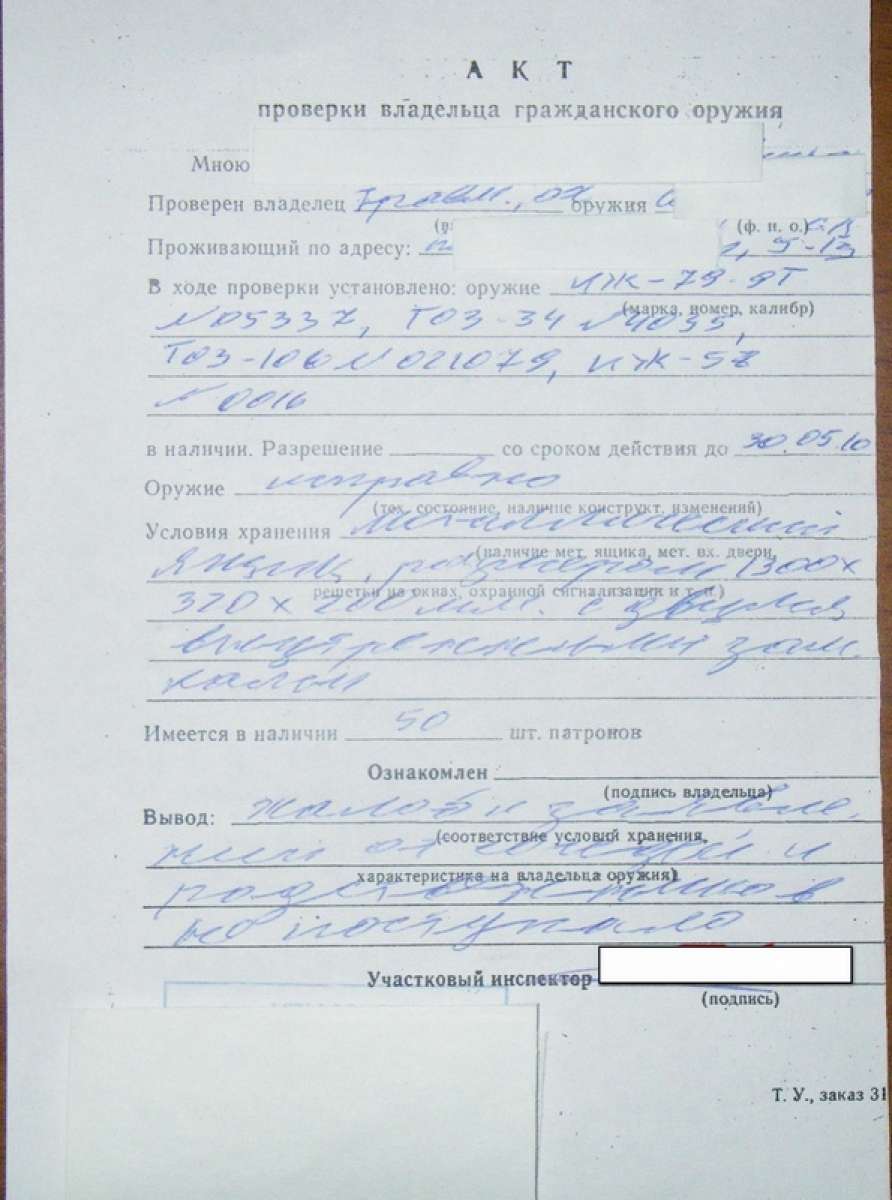 АКТ
проверки владельца гражданского оружия
Мною
Проверен владелец травм., ох оружия
(ф. и. о.)
Проживающий по адресу: 5-13
В ходе проверки установлено: оружие ИЖ-79-9Т
(марка, номер, калибр)
№05337, ТОЗ-34 №4035,
ТОЗ-106 №021079, ИЖ-58
№0016
в наличии. Разрешение со сроком действия до 30.05.10
Оружие исправно
(тех. состояние, наличие конструкт. изменений)
Условия хранения металлический
(наличие мет. ящика, мет. вх. двери,
ящик, размером 1300х
решетки на окнах, охранной сигнализации и т. п.)
320х200мм. с двумя
внутренними зам
ками
Имеется в наличии 50 шт. патронов
Ознакомлен
(подпись владельца)
Вывод: жалоб и заявле
(соответствие условий хранения,
ний от соседей и
характеристика на владельца оружия)
родственников
не поступало
Участковый инспектор
(подпись)
Т. У., заказ 31